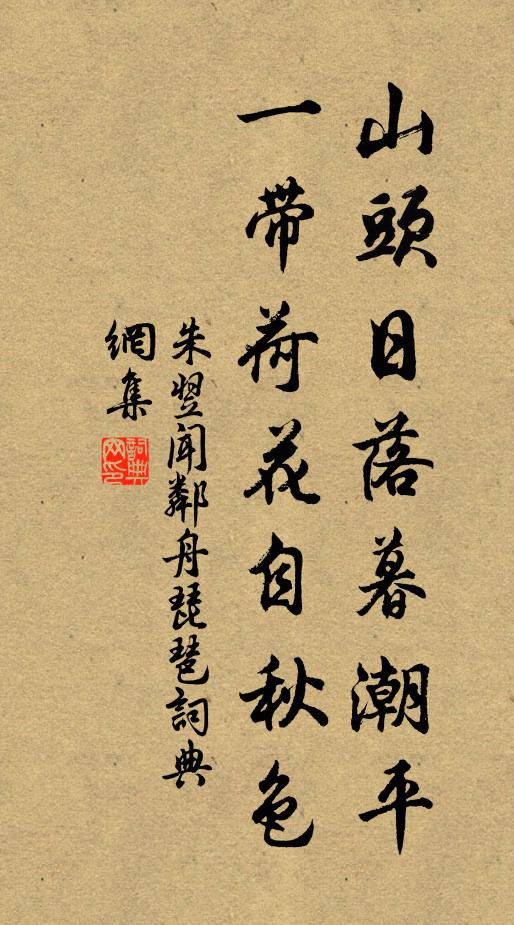 山頭日落暮潮平
一帶荷花自秋色
朱翌聞鄰舟琵琶詞典
網集
詞典網印